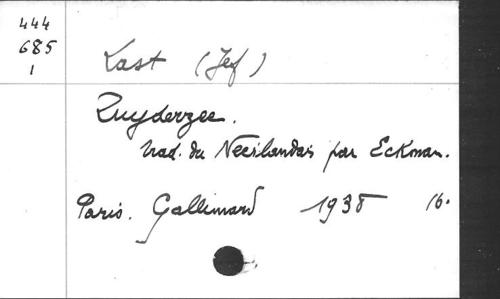 444
685
1
Last (Jef)
Zuyderzee.
trad. du Néerlandais par Eckman.
Paris. Gallimard 1938 16.